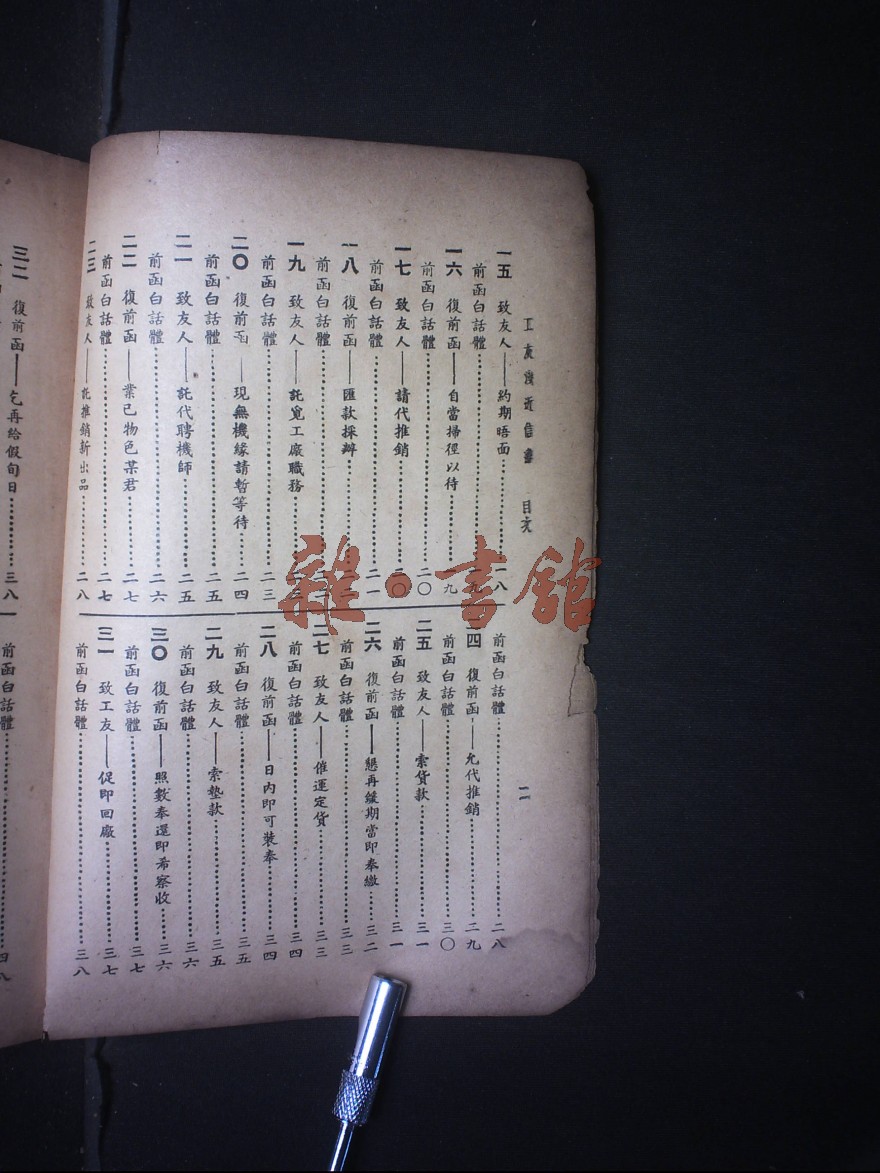 工友淺近信範 目次
二
一五 致友人——約期晤面………一八
前函白話體………一九
一六 復前函——自當掃徑以待………一九
前函白話體………二〇
一七 致友人——請代推銷………二〇
前函白話體………二一
一八 復前函——匯款採辦
前函白話體
一九 致友人——託覓工廠職務
前函白話體………二三
二〇 復前函——現無機緣請暫等待………二四
前函白話體………二五
二一 致友人——託代聘機師………二五
前函白話體………二六
二二 復前函——業已物色某君………二七
前函白話體………二七
二三 致友人——託推銷新出品………二八
前函白話體………二八
二四 復前函——允代推銷………二九
前函白話體………三〇
二五 致友人——索貨款………三一
前函白話體………三一
二六 復前函——懇再緩期當即奉繳………三二
前函白話體………三三
二七 致友人——催運定貨………三三
前函白話體………三四
二八 復前函——日內即可裝奉………三四
前函白話體………三五
二九 致友人——索墊款………三五
前函白話體………三六
三〇 復前函——照數奉還即希察收………三六
前函白話體………三七
三一 致工友——促即回廠………三七
前函白話體………三八
三二 復前函——乞再給假旬日………三八
前函白話體………四八
雜·書館